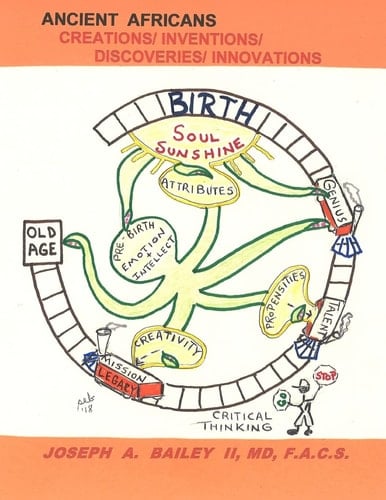 ANCIENT AFRICANS
CREATIONS/ INVENTIONS/
DISCOVERIES/ INNOVATIONS
BIRTH
SOUL
SUNSHINE
ATTRIBUTES
GENIUS
OLD
AGE
PRE-BIRTH
EMOTION
+
INTELLECT
PROPENSITIES
TALENT
CREATIVITY
MISSION
LEGACY
STOP
GO
CRITICAL
THINKING
'18
JOSEPH A. BAILEY II, MD, F.A.C.S.